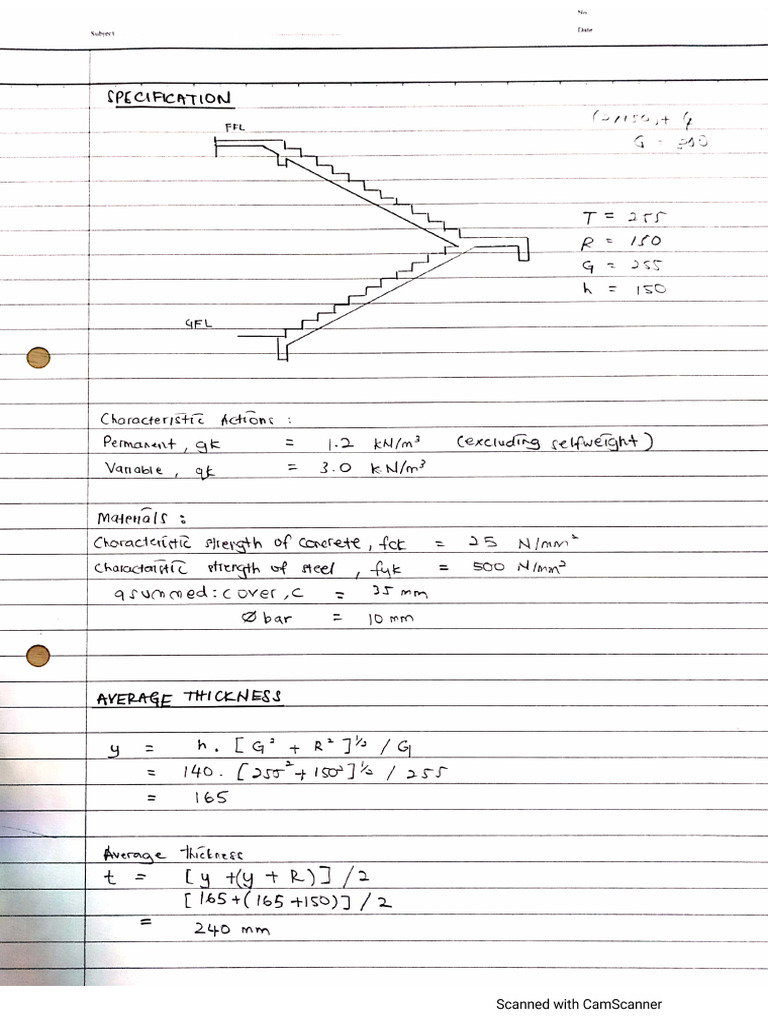 No.
Subject
Date
SPECIFICATION
FFL
(2×150) + G
G = 300
T = 255
R = 150
G = 255
h = 150
GFL
Characteristic Actions :
Permanent, gk = 1.2 kN/m³ (excluding selfweight)
Variable, qk = 3.0 kN/m³
Materials :
Characteristic strength of concrete, fck = 25 N/mm²
Charactaristic strength of steel, fyk = 500 N/mm²
assummed: cover, c = 35 mm
Ø bar = 10 mm
AVERAGE THICKNESS
y = h. [G² + R²]^½ / G
= 140. [255² + 150²]^½ / 255
= 165
Average thickness
t = [y +(y + R)] / 2
[165+(165+150)] / 2
= 240 mm
Scanned with CamScanner